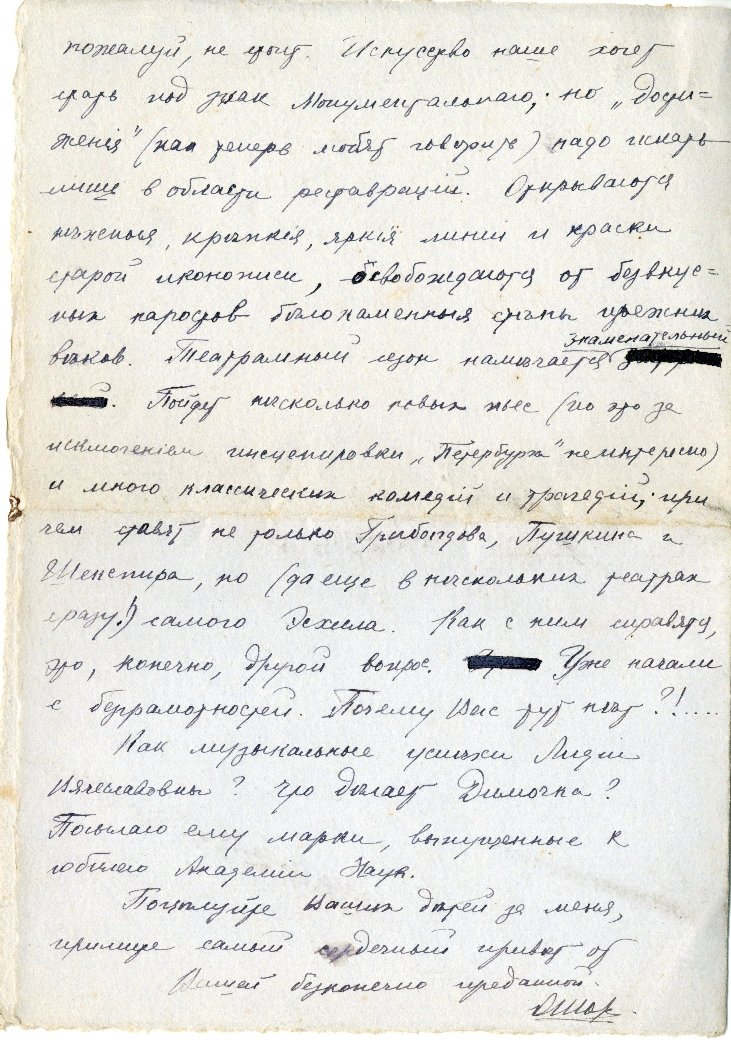 пожалуй, не стоит. Искусство наше хочет
стать под знак Монументальнаго; но „дости=
женія" (как теперь любят говорить) надо искать
лишь в области реставрацій. Открываются
нѣжныя, крѣпкія, яркія линіи и краски
старой иконописи, освобождаются от безвкус=
ных наростов бѣлокаменныя стѣны прежних
вѣков. Театральный сезон намѣчается знаменательный
. Пойдет нѣсколько новых пьес (но это за
исключеніем инсценировки „Петербурга" неинтересно)
и много классических комедій и трагедій; при
чем ставят не только Грибоѣдова, Пушкина и
Шекспира, но (да еще в нѣскольких театрах
сразу!) самого Эсхила. Как с ним справятся,
это, конечно, другой вопрос. Уже начали
с безграмотностей. Почему Вас тут нѣт?!....
Как музыкальные успѣхи Лидіи
Вячеславовны? Что дѣлает Димочка?
Посылаю ему марки, выпущенные к
юбилею Академіи Наук.
Поцѣлуйте Ваших дѣтей за меня,
примите самый сердечный привѣт от
Вашей безконечно преданной.
ОШор.